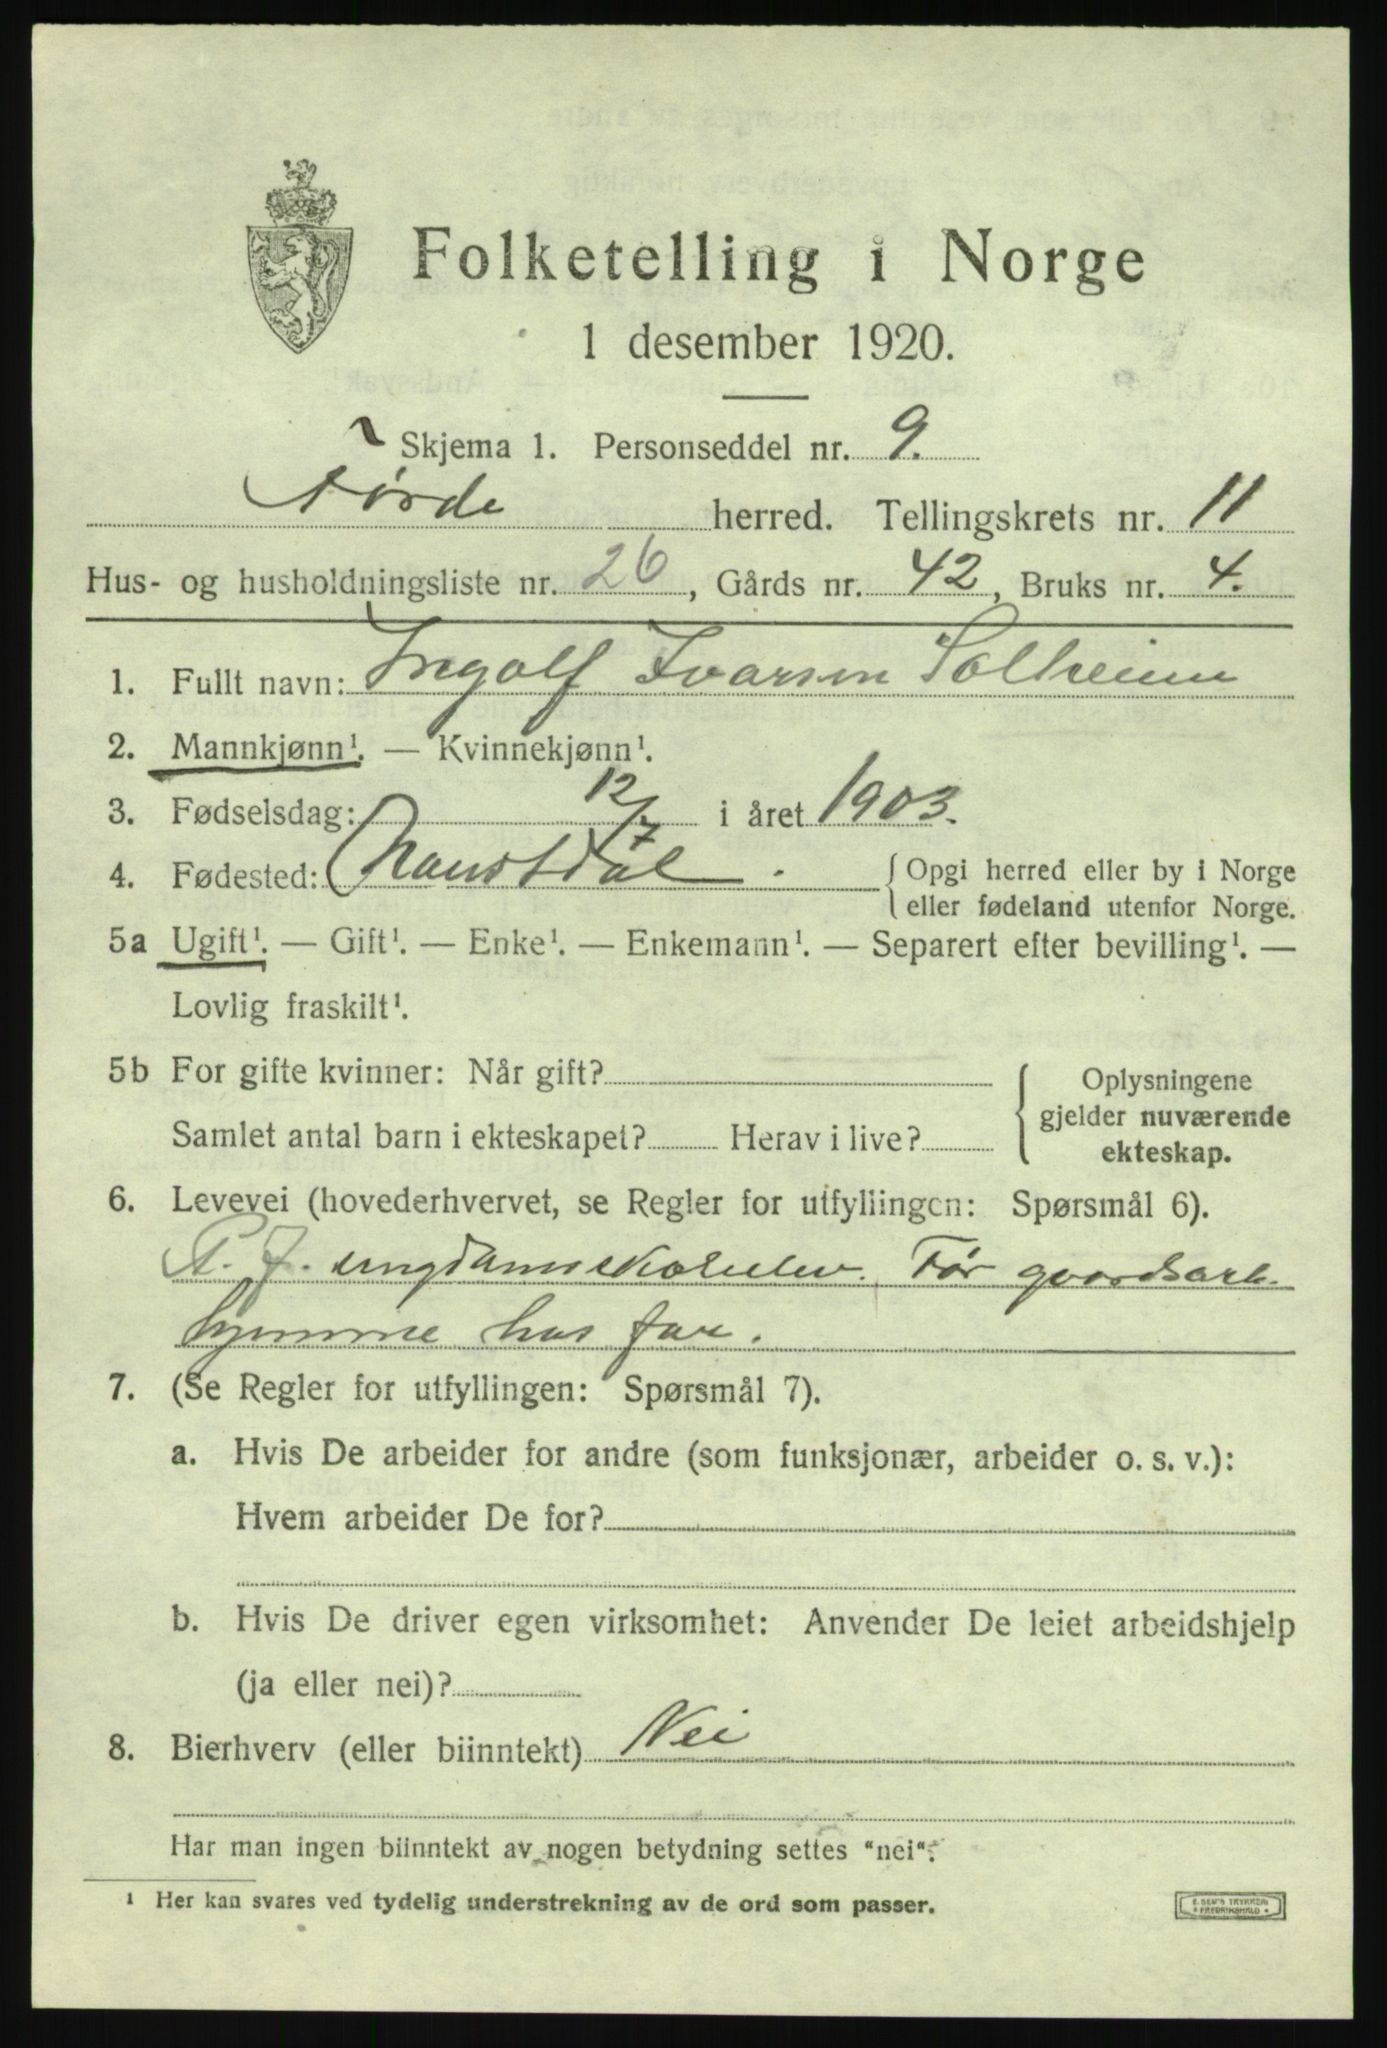 Folketelling i Norge
1 desember 1920.
Skjema 1. Personseddel nr. 9.
Førde herred. Tellingskrets nr. 11
Hus- og husholdningsliste nr. 26, Gårds nr. 42, Bruks nr. 4.
1. Fullt navn: Ingolf Ivarsen Solheim
2. Mannkjønn¹. — Kvinnekjønn¹.
3. Fødselsdag: 12/7 i året 1903.
4. Fødested: Naustdal. { Opgi herred eller by i Norge
eller fødeland utenfor Norge.
5a Ugift¹. — Gift¹. — Enke¹. — Enkemann¹. — Separert efter bevilling¹. —
Lovlig fraskilt¹.
5b For gifte kvinner: Når gift?
Samlet antal barn i ekteskapet? Herav i live?
{ Oplysningene
gjelder nuværende
ekteskap.
6. Levevei (hovederhvervet, se Regler for utfyllingen: Spørsmål 6).
f. ungdomsskoleelev. Før gaardsarb.
hjemme hos far.
7. (Se Regler for utfyllingen: Spørsmål 7).
a. Hvis De arbeider for andre (som funksjonær, arbeider o. s. v.):
Hvem arbeider De for?
b. Hvis De driver egen virksomhet: Anvender De leiet arbeidshjelp
(ja eller nei)?
8. Bierhverv (eller biinntekt) Nei
Har man ingen biinntekt av nogen betydning settes "nei".
¹ Her kan svares ved tydelig understrekning av de ord som passer.
E. SEM'S TRYKKERI
FREDRIKSHALD